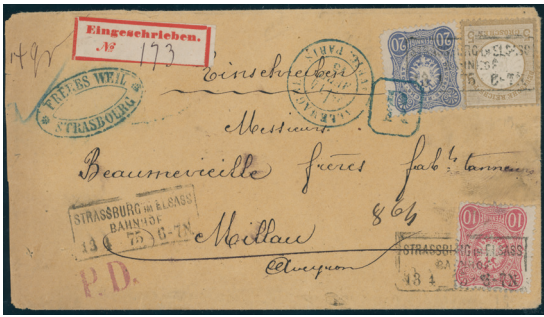 Eingeschrieben.
№ 173
20
20
FRERES WEIL
STRASBOURG
Einschreiben
Messieurs
Beaumevieille frères fabts tanneurs
864
Millau
Aveyron
STRASSBURG IM ELSASS
BAHNHOF
13 4 75 6-7N
P.D.
STRASSBURG IM ELSASS
BAHNHOF
75 6-7N
10
10
STRASSBURG IM ELSASS
BAHNHOF
13 4 6-7N